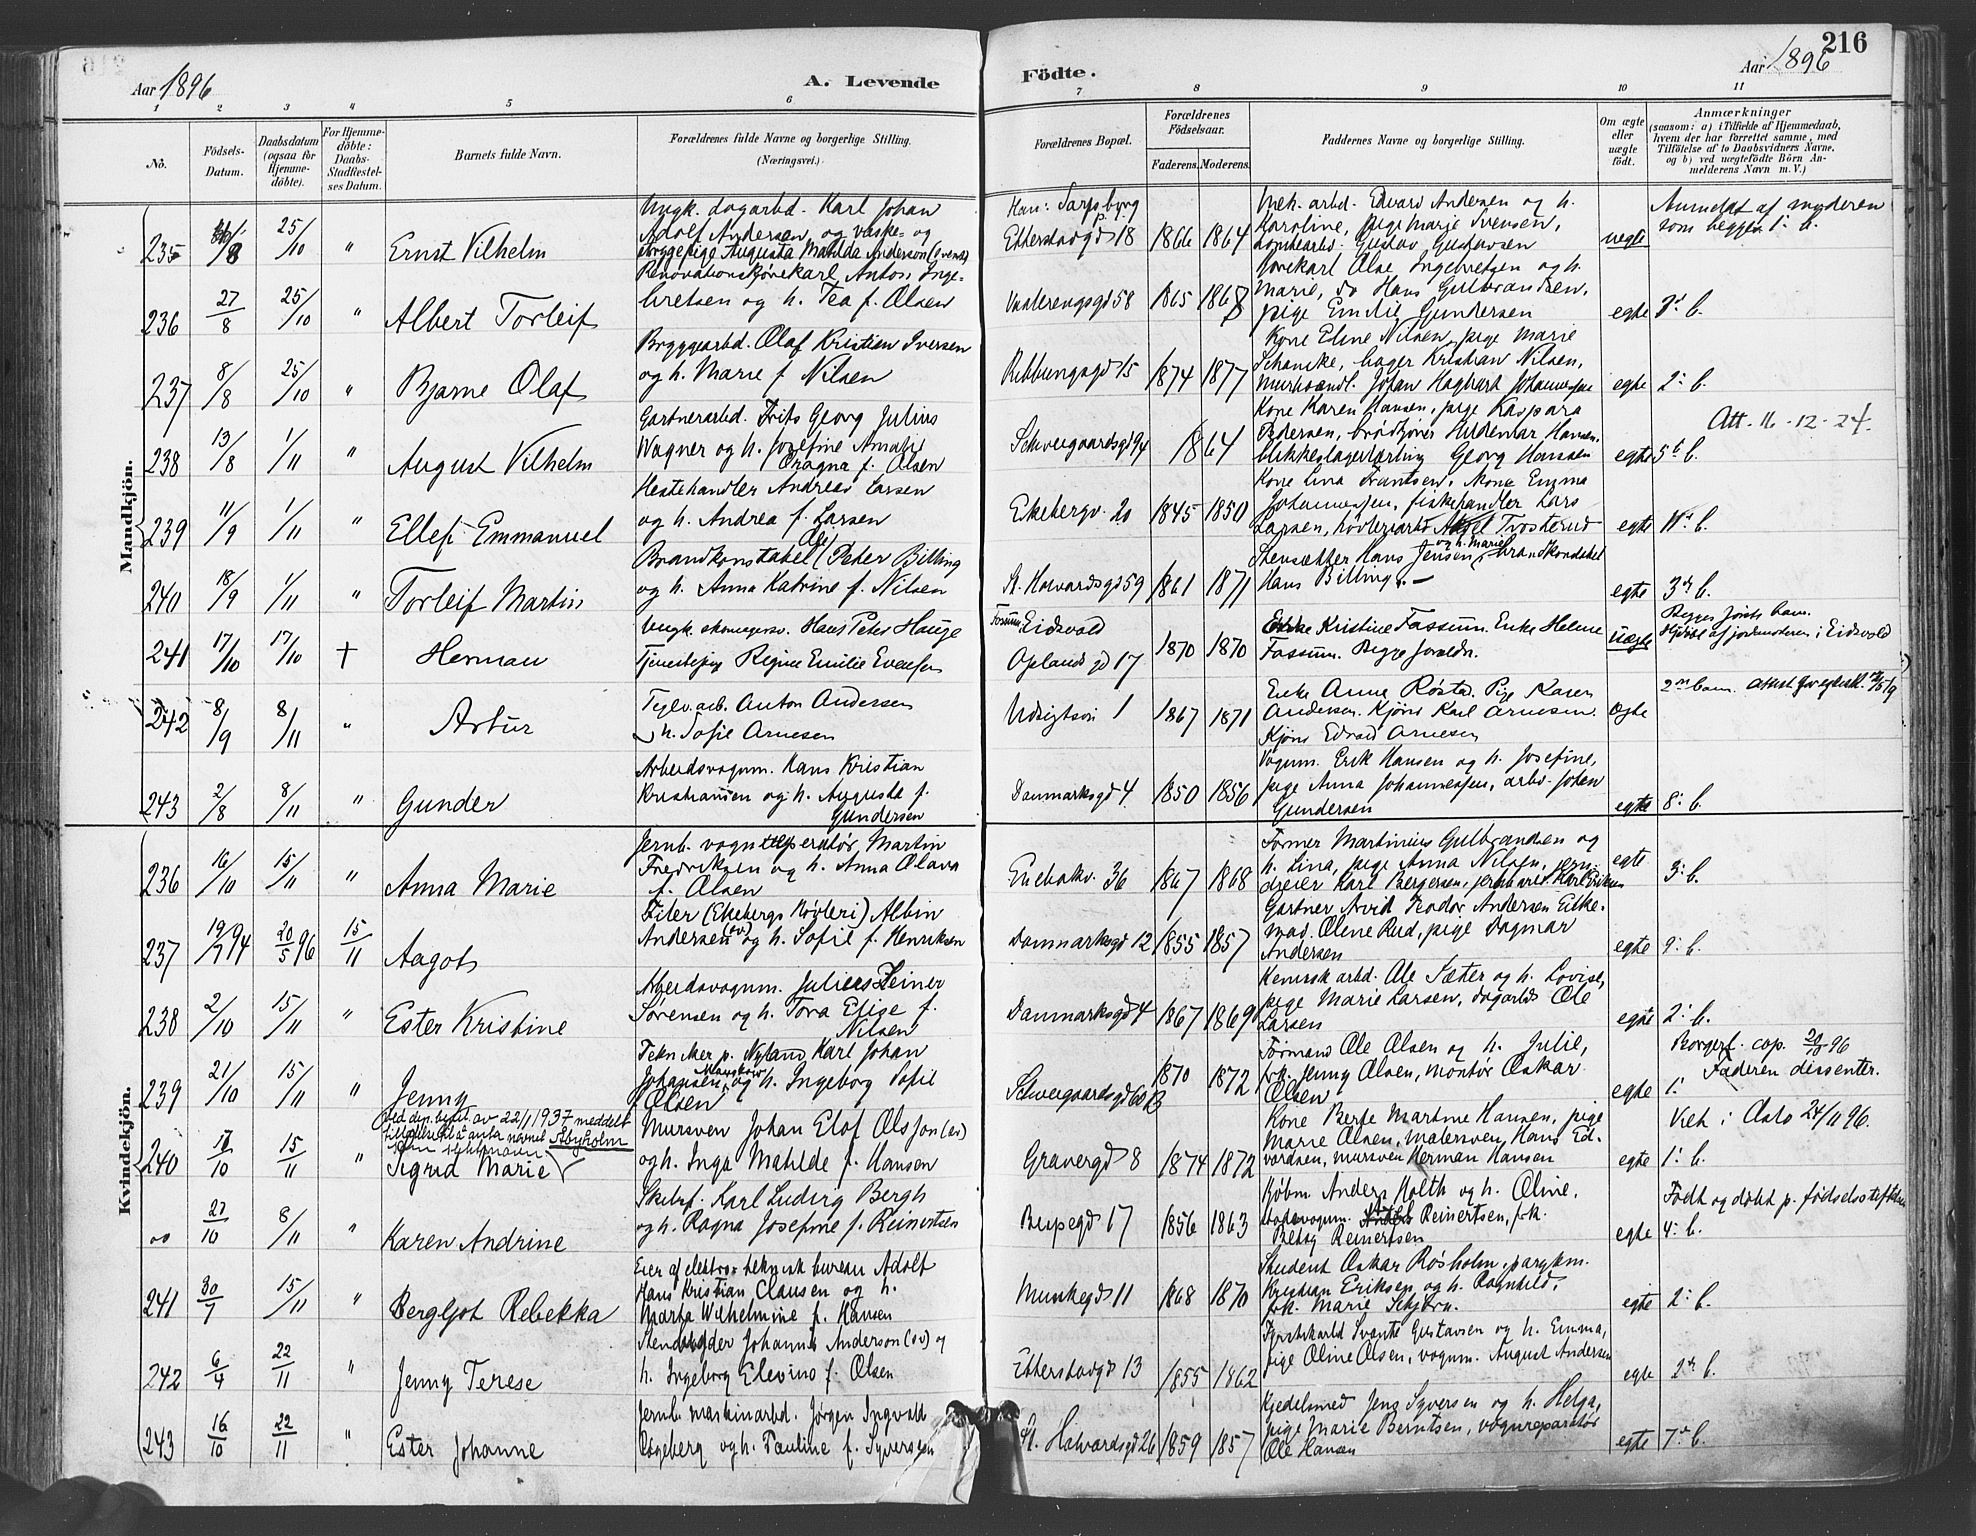 216
Aar 1896
A. Levende
Födte.
Aar 1896
1 2 3 " 5 6 7 8 9 10 11
No.
Födsels-Datum.
Daabsdatum (ogsaa for Hjemme-döbte).
For Hjemme-döbte: Daabs-Stadfæstel-ses Datum.
Barnets fulde Navn.
Forældrenes fulde Navne og borgerlige Stilling.
(Næringsvei.)
Forældrenes Bopæl.
Forældrenes Födselsaar.
Faderens. Moderens.
Faddernes Navne og borgerlige Stilling.
Om ægte eller uægte födt.
Anmærkninger
(saasom: a) i Tilfælde af Hjemmedaab, hvem der har forrettet samme, med Tilföielse af to Daabsvidners Navne, og b) ved uægtefödte Börn An-melderens Navn m. V.)
Mandkjön.
235 /8 25/10 " Ernst Vilhelm
Ungk. dagarbd. Karl Johan
Adolf Andersen og vaske- og
bryggepige Augusta Matilde Anderson (svensk)
Han: Sarpsborg
Etterstadgd 18 1866 1864
Mek. arbd. Edvard Andersen og h.
Karoline, pige Marie Svensen,
Gustav Gustavsen
uegte
Anmeldt af moderen
som begges 1. b.
236 27/8 25/10 " Albert Torleif
Renovationskjørekarl Anton Inge-
bretsen og h. Tea f. Olsen
Vaalerengsgd 58 1865 1868
Kjørekarl Olse Ingebretsen og h.
Marie, do Hans Gulbrandsen,
pige Emilie Gundersen
egte 2' b.
237 8/8 25/10 " Bjarne Olaf
Bryggearbd. Olaf Kristian Iversen
og h. Marie f. Nilsen
Ribbungsgd 15 1874 1877
Kone Eline Nilsen, pige Marie
Schancke, bager Kristian Nilsen,
Johan Hagbart Johannessen
egte 2' b.
238 13/8 1/11 " August Vilhelm
Gartnerarbd. Frits Georg Julius
Wagner og h. Josefine Amalie
Dragna f. Olsen
Schweigaardsgd 94 1864
Kone Karen Hansen, pige Kaspara
Pedersen, brødkjører Hildemar Hansen,
blikkeslagerlærling Georg Hansen
egte 5te b.
Att. 16-12-24.
239 11/9 1/11 " Ellef Emmanuel
Hestehandler Andreas Larsen
og h. Andrea f. Larsen
Ekebergv. 20 1845 1850
Kone Lina Frantsen, kone Emma
Johannessen, fiskehandler Lars
Larsen, høvleriarbd Trosterud
egte 11' b.
240 18/9 1/11 " Torleif Martin
Brandkonstabel (Ole) Peter Billing
og h. Anna Katrine f. Nilsen
St. Halvardsgd 59 1861 1871
Stensætter Hans Jensen og h. Marie, brandkonstabel
Hans Billing. —
egte 3de b.
241 17/10 17/10 † Herman
Ungk. skomagersv. Hans Peter Hauge
Tjenestepige Regine Emilie Evensen
Eidsvold
Oplandsgd 17 1870 1870
Enke Kristine Fossum. Enke Helene
Fossum. Begge
Uægte
Begges første barn.
Hjdöbt af jordmoderen i Eidsvold
242 8/9 8/11 " Artur
Teglv. arb. Anton Andersen
h. Sofie Arnesen
Udsigtsvei 1 1867 1871
Enke Anna Røstad. Pige Karen
Andersen. Kjörer Karl Arnesen.
Kjörer Edvard Arnesen
Ægte
2net barn.
243 2/8 8/11 " Gunder
Arbeidsvognm. Hans Kristian
Kristiansen og h. Augusta f.
Gundersen
Danmarksgd 4 1850 1856
Vognm. Erik Hansen og h. Josefine,
pige Anna Johannessen, arbd. Johan
Gundersen
egte 8' b.
Kvindekjön.
236 16/10 15/11 " Anna Marie
Jernb. vognreperatør Martin
Fredriksen og h. Anna Olava
f. Olsen
Enebakv. 36 1867 1868
Former Martinius Gulbrandsen og
h. Lina, pige Anna Nilsen, jern-
dreier Karl Bergersen, Karl Eriksen
egte 3' b.
237 19/7 94 20/5 96 15/11 Aagot
Filer (Ekebergs Høvleri) Albin
Andersen (sv) og h. Sofie f. Henriksen
Danmarksgd 12 1855 1857
Gartner Arvid Teodor Andersen Enke-
mad. Oline Rud, pige Dagmar
Andersen
egte 9' b.
238 2/10 15/11 " Ester Kristine
Arbeidsvognm. Julius Leiner
Sørensen og h. Tora Elise f.
Nilsen
Danmarksgd 4 1867 1869
Kemisk arbd. Ole Sæter og h. Lovise,
pige Marie Larsen, dagarbd Ole
Larsen
egte 2' b.
239 21/10 15/11 " Jenny
Tekniker p. Nyland Karl Johan
Johansen og h. Ingeborg Sofie
Olsen
Schweigaardsgd 60 B 1870 1872
Formand Ole Olsen og h. Julie,
frk. Jenny Olsen, montør Oskar
Olsen
egte 1'
Borgerl. cop. 20/10 96
Faderen dissenter.
240 /10 15/11 " Sigrid Marie
Ved dep. bevil. av 22/1 1937 meddelt
tilladelse til å anta navnet Åbyholm
som slektsnavn
Mursven Johan Elof Olsson (sv)
og h. Inga Matilde f. Hansen
Gravergd 8 1874 1872
Kone Berte Martine Hansen, pige
Marie Olsen, malersven Hans Ed-
vardsen, mursven Herman Hansen
egte 1' b.
Viet i Oslo 24/11 96.
27/10 8/11 " Karen Andrine
Skibsf. Karl Ludvig Bergh
og h. Ragna Josefine f. Reinertsen
Bispegd 17 1856 1863
Kjøbm. Anders Holth og h. Oline,
Reinertsen, frk.
Betsy Reinertsen
egte
Født og døbt p. fødselsstiftelsen
4' b.
241 30/7 15/11 " Bergljot Rebekka
Eier af elektro-teknisk bureau Adolf
Hans Kristian Clausen og h.
Marta Wilhelmine f. Hansen
Munkegd 11 1868 1870
Student Oskar Røsholm,
Kristian Eriksen og h. Ragnhild,
frk. Marie
egte 2' b.
242 6/4 22/11 " Jenny Terese
Stenhugger Johannes Anderson (sv) og
h. Ingeborg Elevine f. Olsen
Etterstadgd 13 1855 1862
Fyrstikarbd Svante Gustavsen og h. Emma,
pige Oline Olsen, vognm. August Andersen
egte 2de b.
243 16/10 22/11 " Ester Johanne
Jernb. maskinarbd. Jørgen Ingvald
Egeberg og h. Pauline f. Syversen
St. Halvardsgd 26 1859 1857
Kjedelsmed Jens Syversen og h. Helga,
pige Marie Berntsen, vognreparatør
Ole Hansen
egte 7' b.